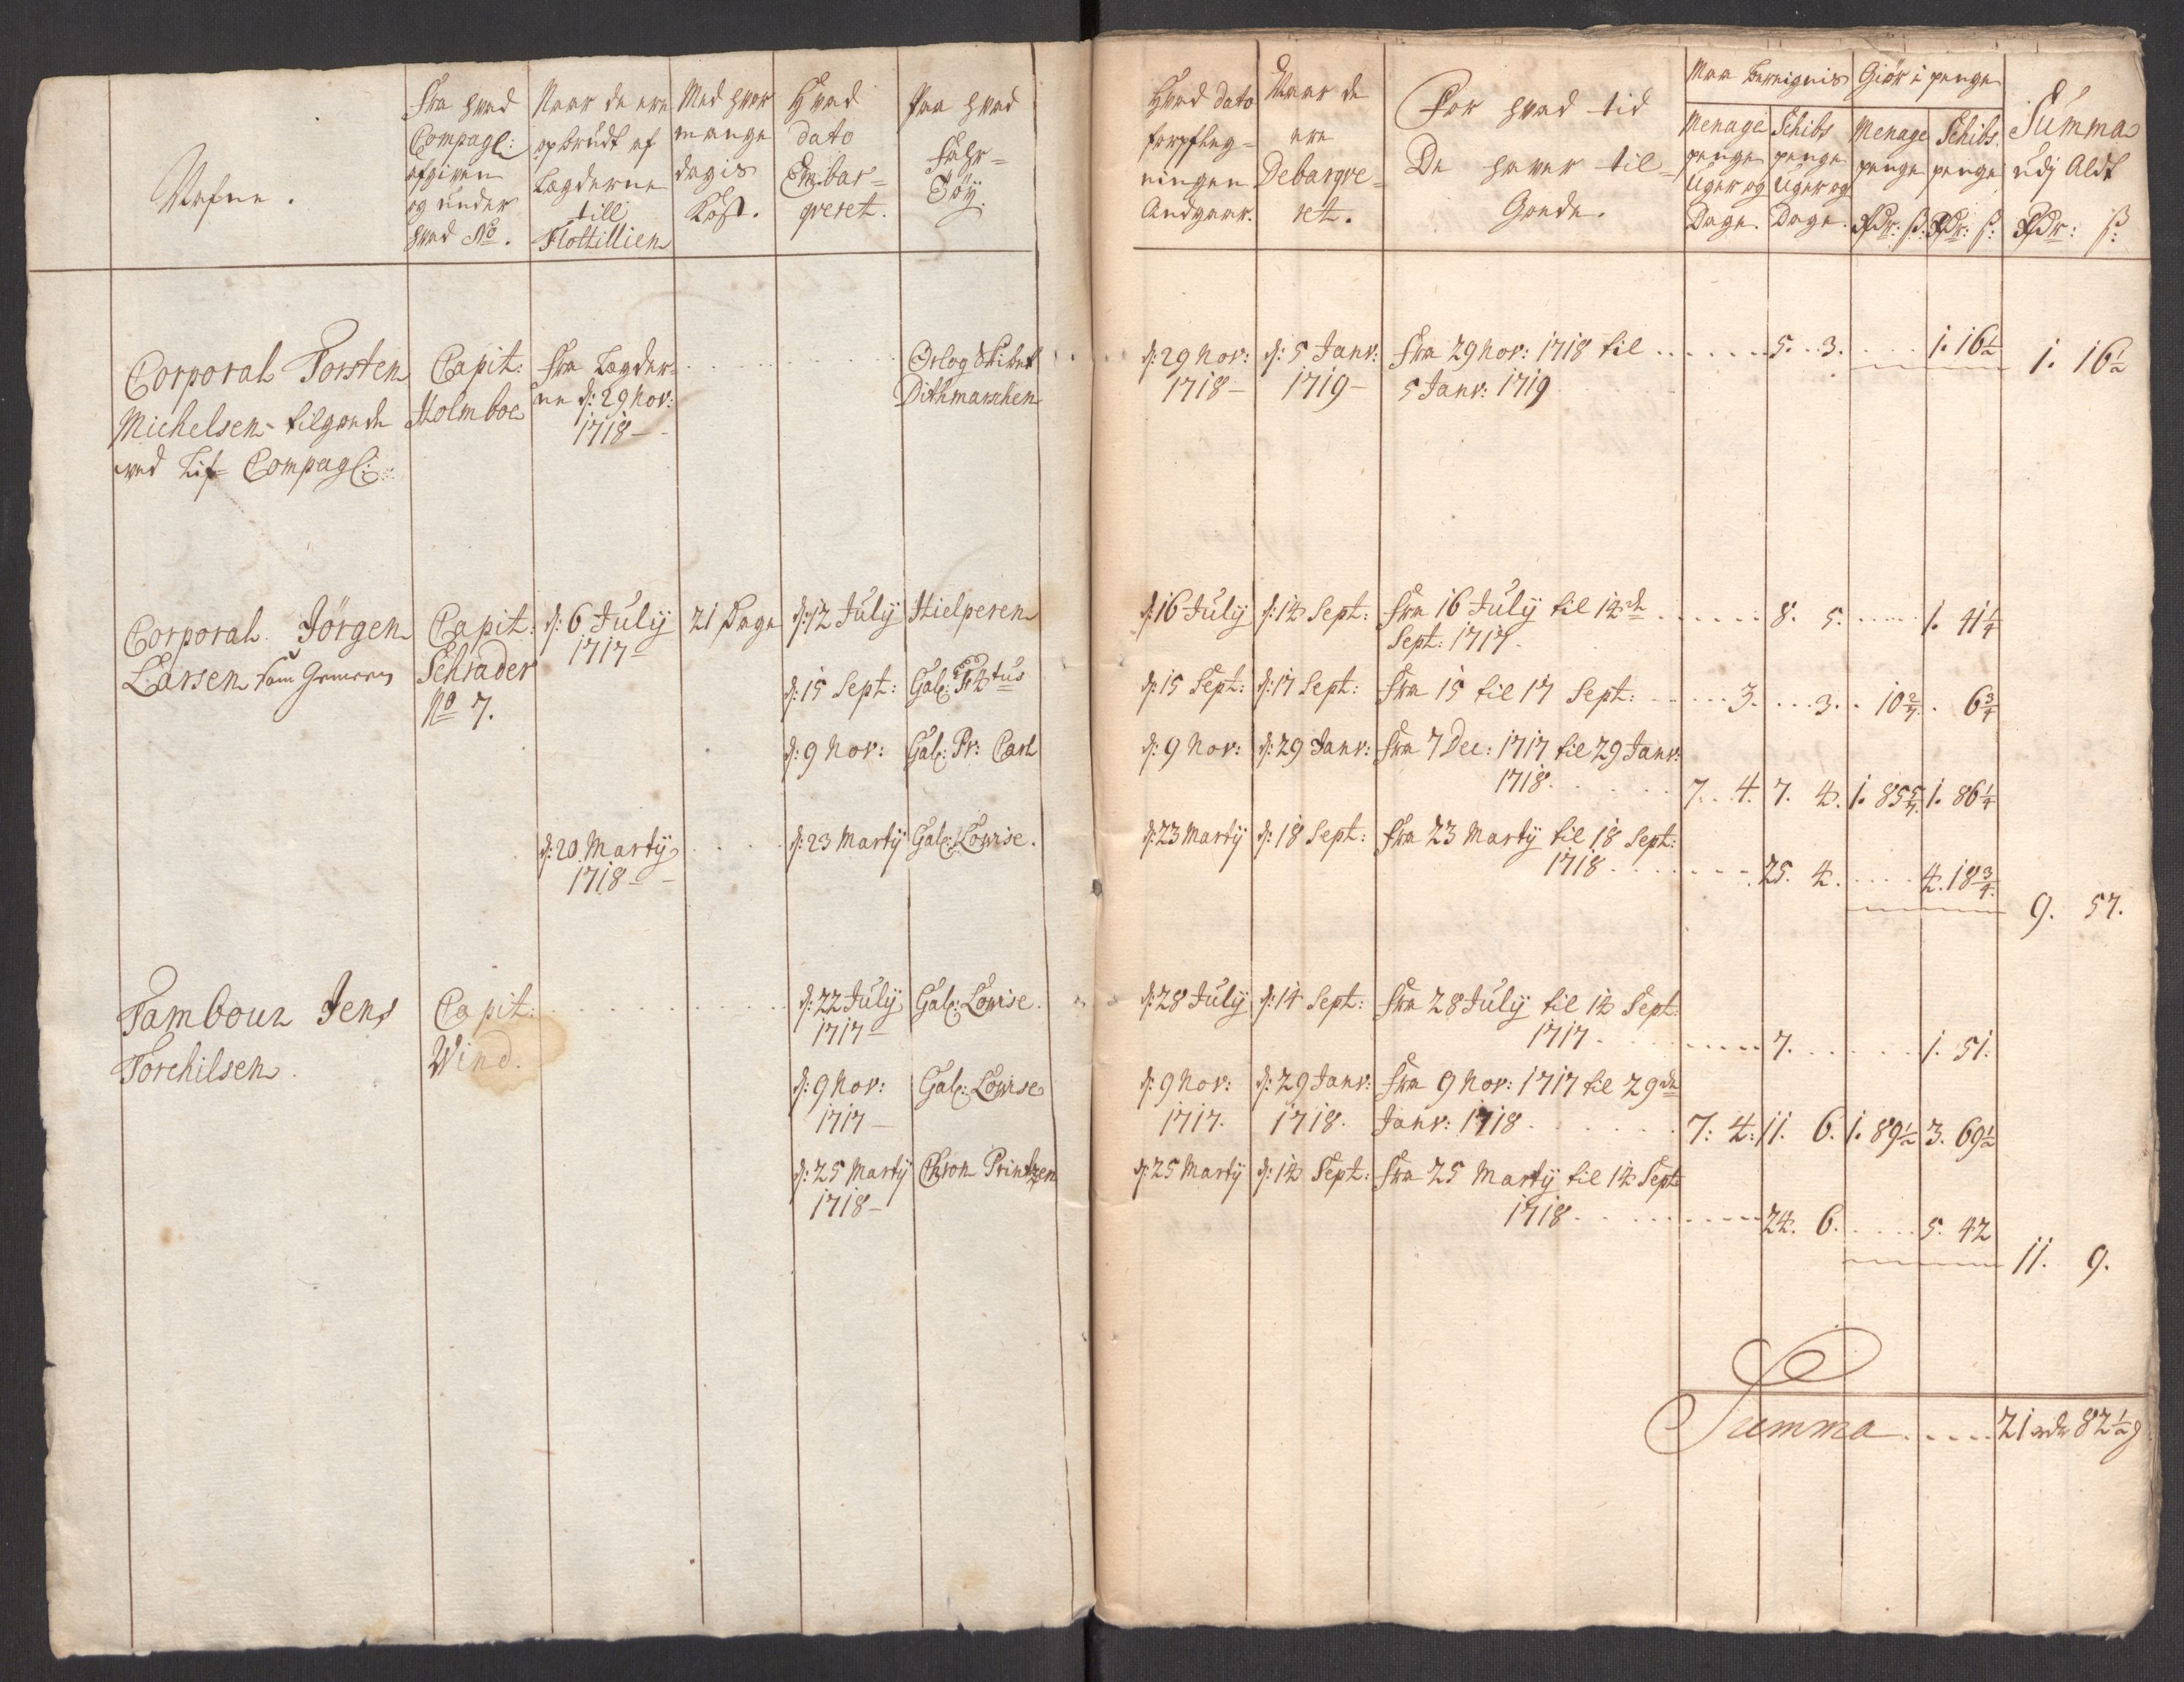 Nafne.
Fra hvad
Compagl:
afgiven
og under
hvad No.
Naar de ere
opbrudt af
Lægderne
till
Flottillien
Med hvor
mange
dagis
Kost.
Hvad
dato
Embar=
qveret.
Paa hvad
Fahr=
Töÿ.
Hvad dato
forpfleg=
ningen
Andgaar.
Naar de
ere
Debarqve=
ret.
For hvad tid
De haver til=
Gode.
Menage
penge
Uger og
Dage.
Schibs
penge
Uger og
Dage.
Giör i penge
Menage
penge
Rdr: ß:
Schibs
penge
Rdr: ß:
Summa
udj Aldt
Rdr: ß:
Corporal Torsten
Michelsen tilgode
ved Lif= Compagl:
Capit:
Holmboe
Fra Lægder=
ne d: 29 Nov:
1718 -
Orlog Skibet
Dithmarschen
d: 29 Nov:
1718 -
d: 5 Janv:
1719 -
Fra 29 Nov: 1718 til
5 Janv: 1719
5. 3.
1. 16½
1. 16½
Corporal Jörgen
Larsen
Capit:
Schrader
No 7.
d: 6 Julÿ
1717 -
21 Dage
d: 12 Julÿ
Hielperen
d: 16 Julÿ
d: 14 Sept:
Fra 16 Julÿ til 14de
Sept: 1717.
8. 5.
1. 41¼
d: 15 Sept:
Gal: Fr 4tus
d: 15 Sept:
d: 17 Sept:
Fra 15 til 17 Sept:
3. 3.
10 2/7. 6¾
d: 9 Nov:
Gal: Pr: Carl
d: 9 Nov:
d: 29 Janv:
Fra 7 Dec: 1717 til 29 Janv:
1718.
7. 4. 7. 4.
1. 85 5/7. 1. 86¼
d: 20 Martÿ
1718 -
d: 23 Martÿ
Gal: Lovise.
d: 23 Martÿ
d: 18 Sept:
Fra 23 Martÿ til 18 Sept:
1718
25. 4.
4. 18¾.
9. 57.
Tambour Jens
Torchilsen.
Capit:
Wind.
d: 22 Julÿ
1717 -
Gal: Lovise.
d: 28 Julÿ
d: 14 Sept:
Fra 28 Julÿ til 14 Sept:
1717.
7.
1. 51.
d: 9 Nov:
1717 -
Gal: Lovise
d: 9 Nov:
1717.
d: 29 Janv:
1718.
Fra 9 Nov: 1717 til 29de
Janv: 1718.
7. 4. 11. 6.
1. 89½ 3. 69½
d: 25 Martÿ
1718 -
Chron Printzen
d: 25 Martÿ
d: 14 Sept:
Fra 25 Martÿ til 14 Sept:
1718.
24. 6.
5. 42
11. 9.
Summa 21 rdr 82½ ß